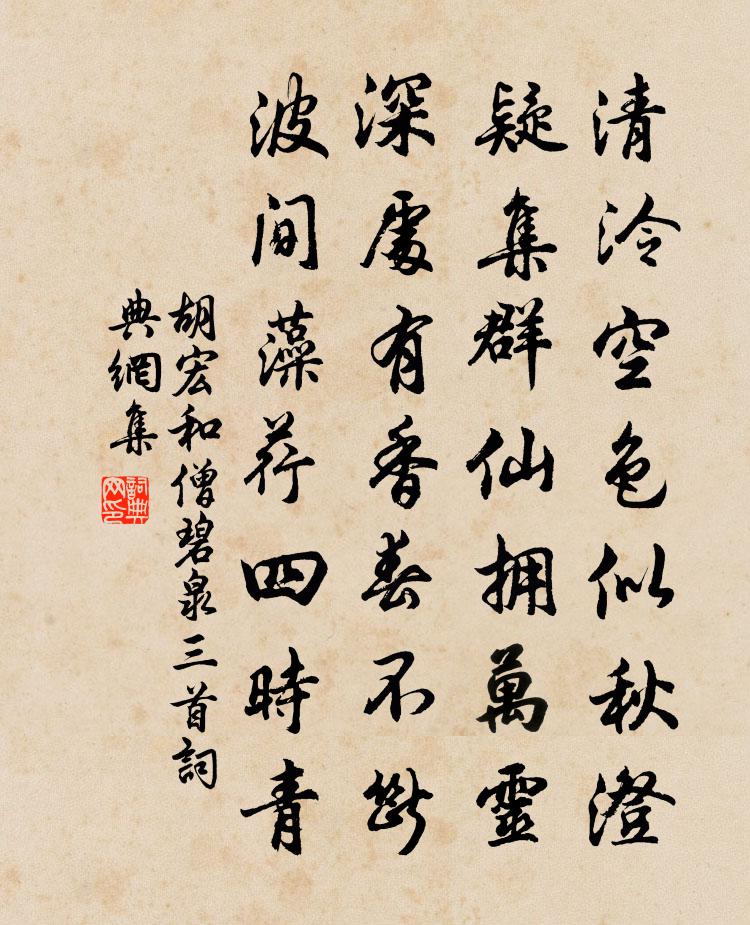 清泠空色似秋澄
疑集群仙擁萬靈
深處有香春不斷
波間藻荇四時青
胡宏和僧碧泉三首詞
典網集
詞典網印